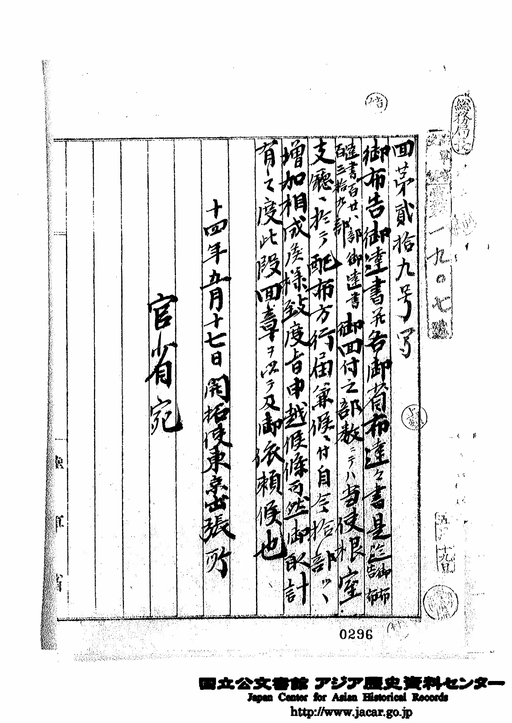 総務局
一九〇七號
回第貳拾九号写
御布告御達書並各御省布達々書是迄御布告御布
達書百廿八部御達書百三拾九部御回付之部数ニテハ当使根室
支廳ヽ於テ配布方行届兼候ニ付自今拾部ツヽ
増加相成候様致度旨申越候條可然御取計
有之度此段回章ヲ以テ及御依頼候也
十四年五月十七日開拓使東京出張所
官省宛
五月十九日
陸軍省
0296
国立公文書館 アジア歴史資料センター
Japan Center for Asian Historical Records
http://www.jacar.go.jp